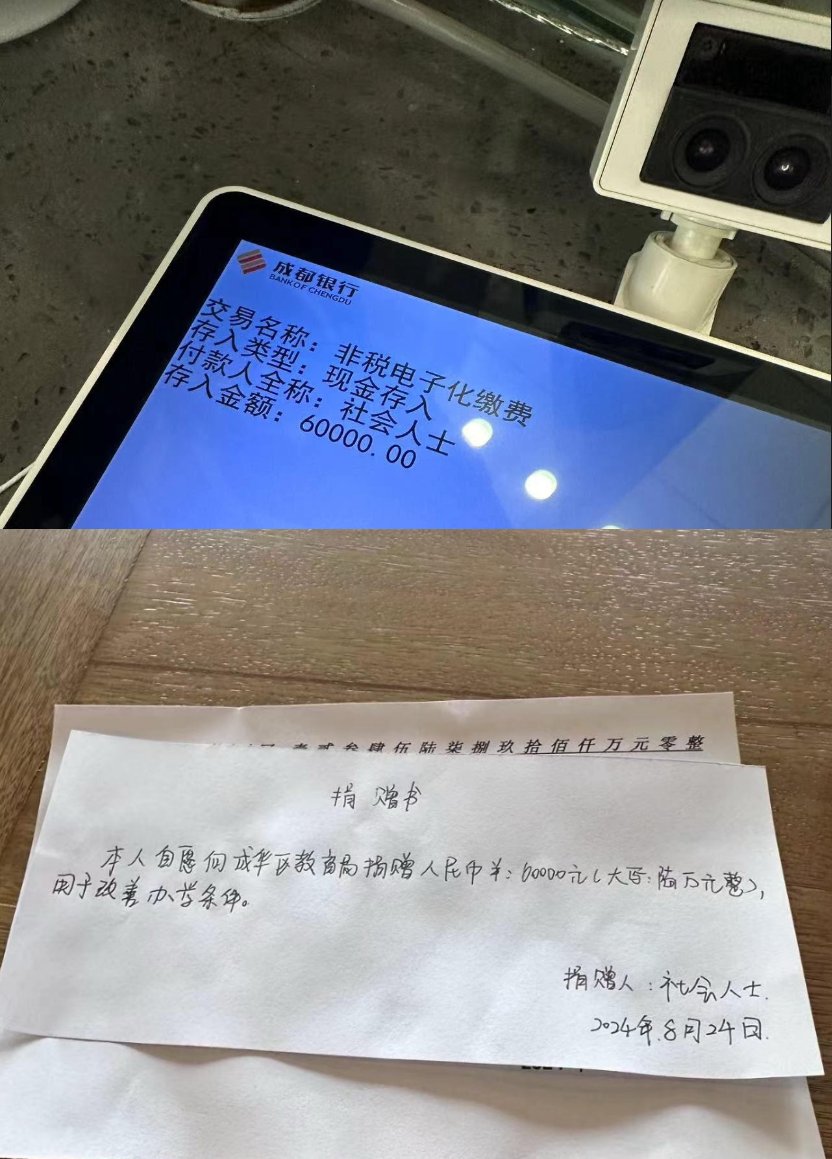 成都银行
BANK OF CHENGDU
交易名称：非税电子化缴费
存入类型：现金存入
付款人全称：社会人士
存入金额：60000.00
壹贰叁肆伍陆柒捌玖拾佰仟万元零整
捐赠书
本人自愿向成华区教育局捐赠人民币￥：60000元（大写：陆万元整），
用于改善办学条件。
捐赠人：社会人士.
2024年.8月24日.